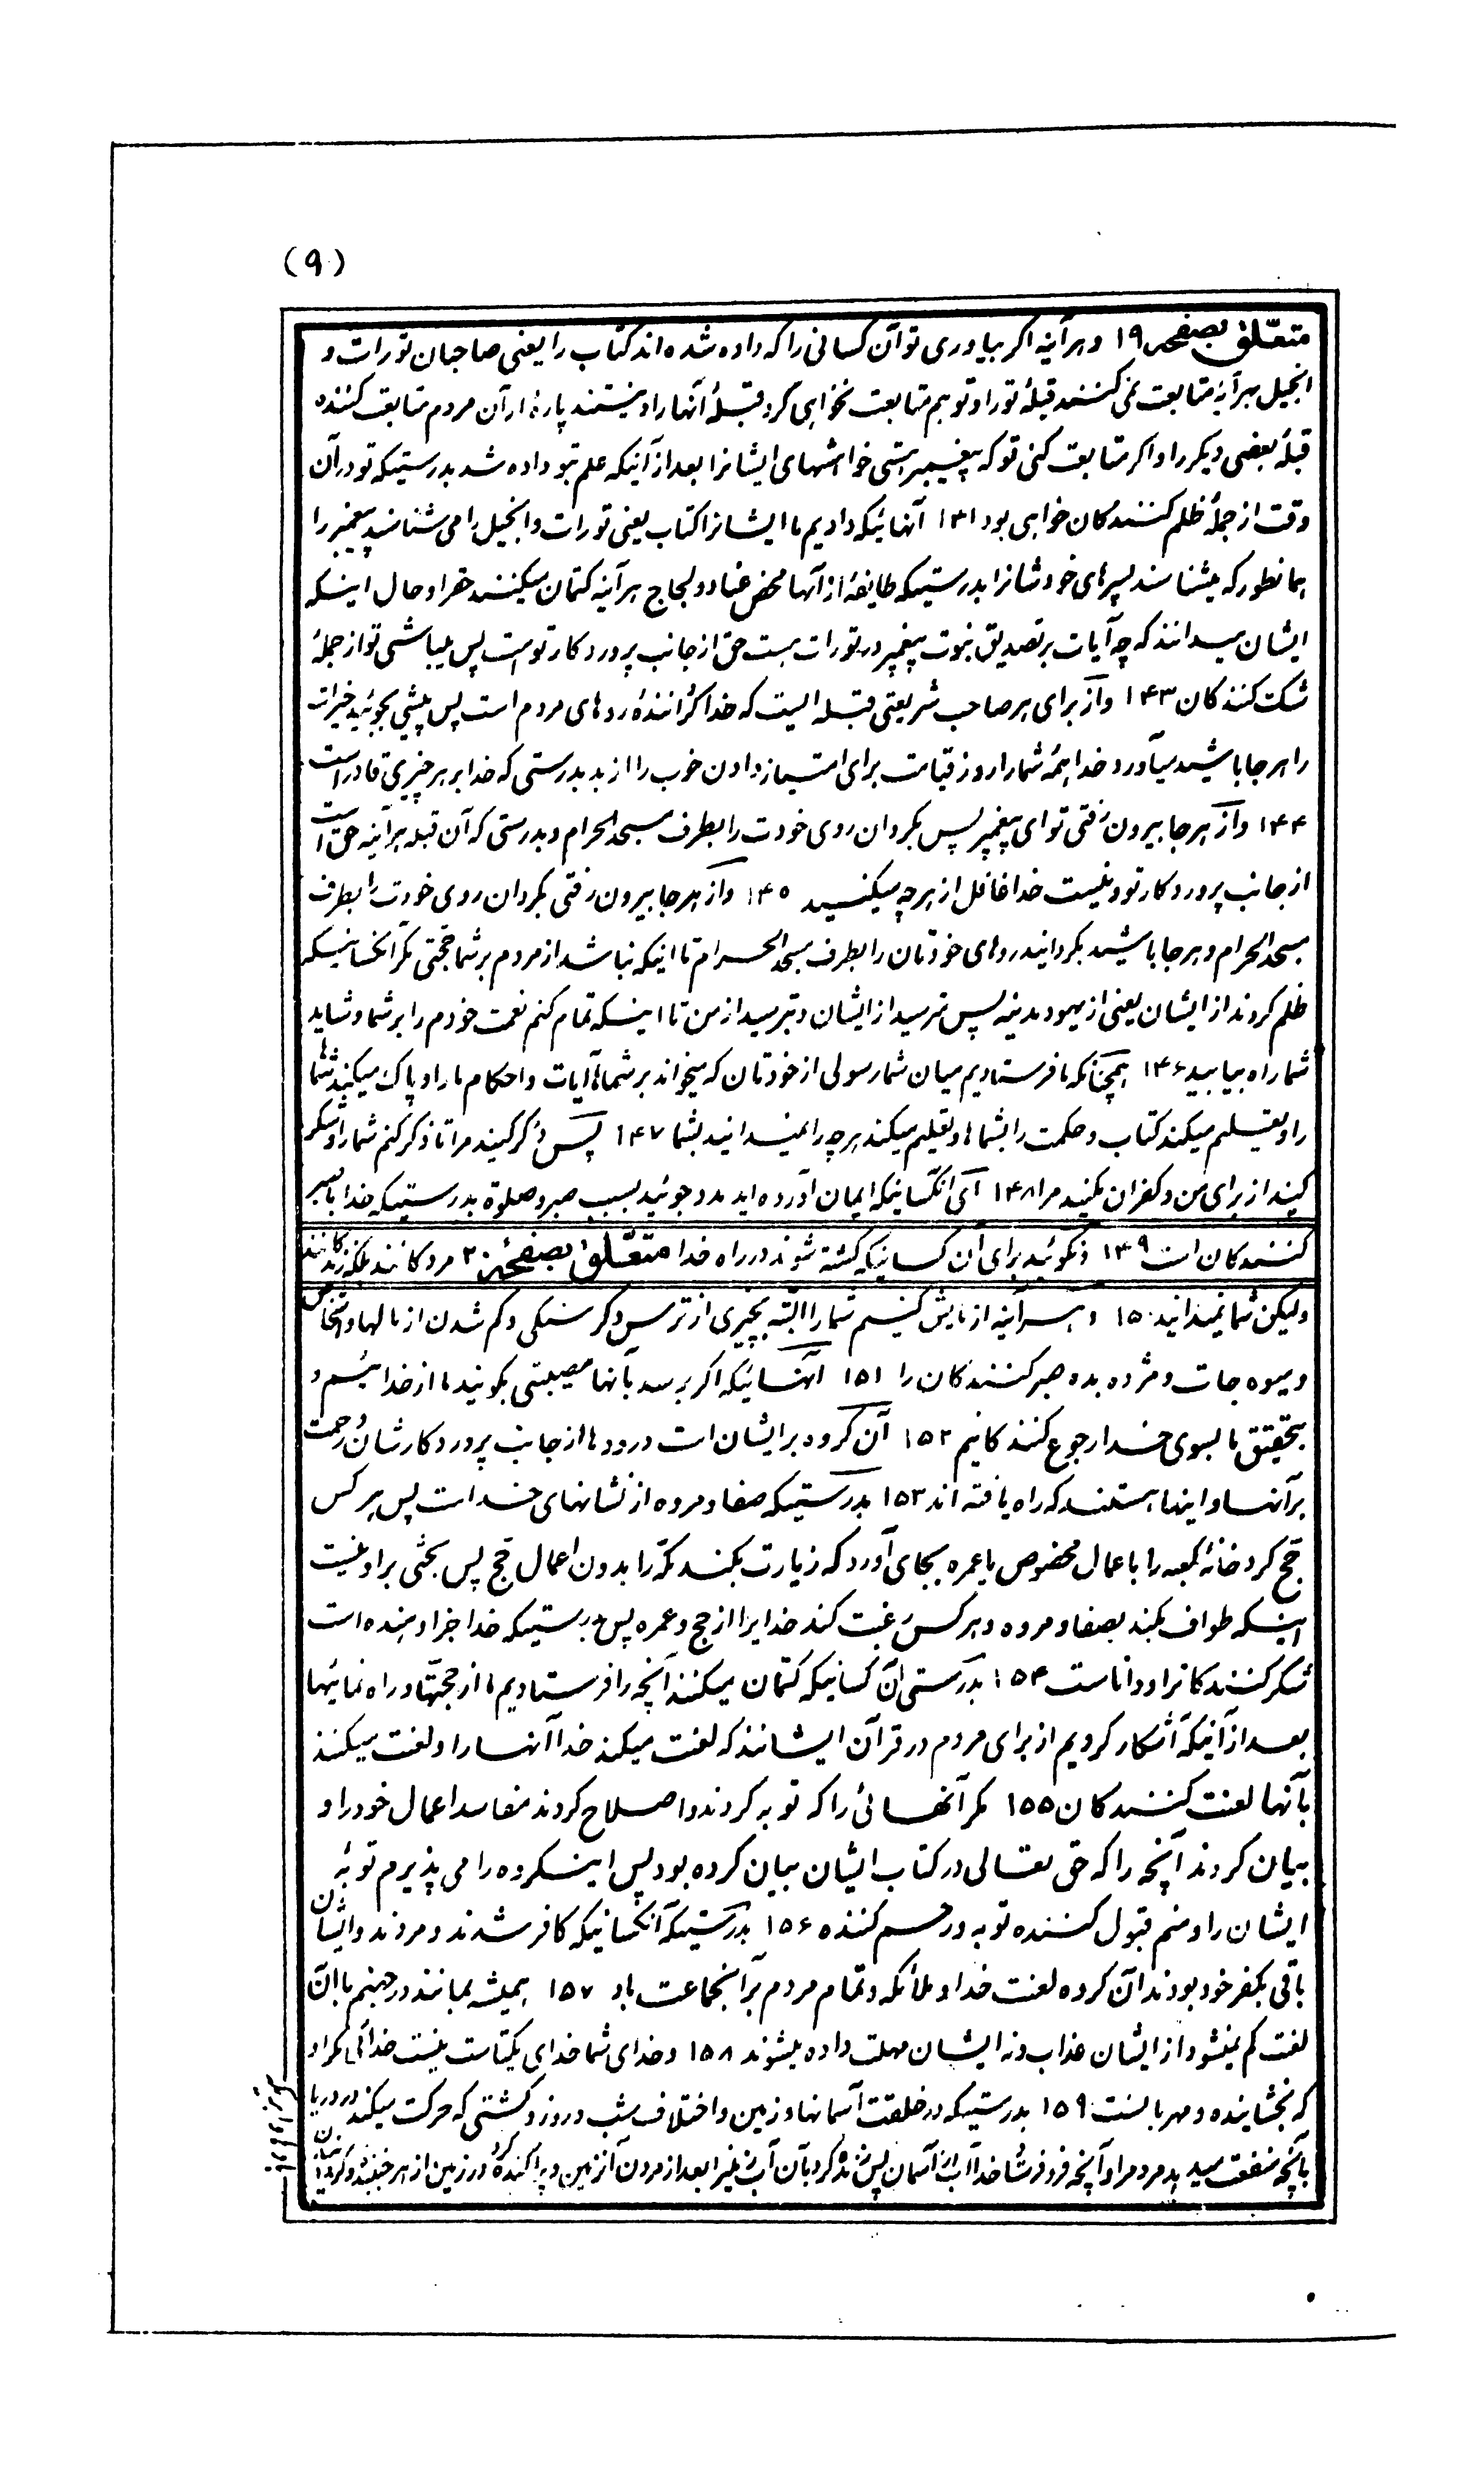 (۹)
متعلّق بصفحه ۱۹ و هر آینه اگر بیاوری تو آن کسانی را که داده شده اند کتاب را یعنی صاحبان تورات و
انجیل هر آینه متابعت نمی کنند قبلۀ تو را و تو هم متابعت نخواهی کرد قبلۀ آنها را و نیستند پارۀ از آن مردم متابعت کننده
قبلۀ بعضی دیگر را و اگر متابعت کنی تو که پیغمبر هستی خواهشهای ایشانرا بعد از آنیکه علم بتو داده شد بدرستیکه تو در آن
وقت از جملۀ ظلم کنندگان خواهی بود ۱۴۱ آنهائیکه دادیم ما ایشانرا کتاب یعنی تورات و انجیل را می شناسند پیغمبر را
همانطور که میشناسند پسرهای خودشانرا بدرستیکه طایفۀ از آنها محض عناد و لجاج هر آینه کتمان میکنند حقرا و حال اینکه
ایشان میدانند که چه آیات بر تصدیق نبوت پیغمبر در تورات هست حق از جانب پروردگار تو است پس میباشی تو از جملۀ
شک کنندگان ۱۴۳ و از برای هر صاحب شریعتی قبله ایست که خدا گرانندۀ روهای مردم است پس پیشی بجوئید خیرات
را هر جا باشید میآورد خدا همۀ شما را روز قیامت برای امتیاز دادن خوب را از بد بدرستی که خدا بر هر چیزی قادر است
۱۴۴ و از هر جا بیرون رفتی تو ای پیغمبر پس بگردان روی خودت را بطرف مسجد الحرام و بدرستی که آن قبله هر آینه حق است
از جانب پروردگار تو و نیست خدا غافل از هر چه میکنید ۱۴۵ و از هر جا بیرون رفتی بگردان روی خودت را بطرف
مسجد الحرام و هر جا باشید بگردانید روهای خودتان را بطرف مسجد الحرام تا اینکه نباشد از مردم بر شما حجتی مگر آنکسانیکه
ظلم کردند از ایشان یعنی از یهود مدینه پس نترسید از ایشان و بترسید از من تا اینکه تمام کنم نعمت خودم را بر شما و شاید
شما راه بیابید ۱۴۶ همچنانکه ما فرستادیم میان شما رسولی از خودتان که میخواند بر شماها آیات و احکام ما را و پاک میکند شما
را و تعلیم میکند کتاب و حکمت را بشماها و تعلیم میکند هر چه را نمیدانید بشما ۱۴۷ پس ذکر کنید مرا تا ذکر کنم شما را و شکر
کنید از برای من و کفران نکنید مرا ۱۴۸ ای آنکسانیکه ایمان آورده اید مدد جوئید بسبب صبر و صلوة بدرستیکه خدا با صبر
کنندگان است ۱۴۹ و نگوئید برای آن کسانیکه کشته شوند در راه خدا متعلّق بصفحۀ ۲۰ مردگانند بلکه زندگانند
ولیکن شما نمیدانید ۱۵۰ و هر آینه آزمایش کنیم شما را البته بچیزی از ترس و گرسنگی و کم شدن از مالها و اشخاص
و میوه جات و مژده بده صبر کنندگان را ۱۵۱ آنهائیکه اگر برسد بآنها مصیبتی بگویند ما از خدائیم و
بتحقیق ما بسوی خدا رجوع کنندگانیم ۱۵۲ آن گروه بر ایشان است درودها از جانب پروردگارشان و رحمت
بر آنها و اینها هستند که راه یافته اند ۱۵۳ بدرستیکه صفا و مروه از نشانهای خدا است پس هر کس
حج کرد خانۀ کعبه را با عمال مخصوص یا عمره بجای آورد که زیارت بکند مکه را بدون اعمال حج پس بحثی بر او نیست
اینکه طواف بکند بصفا و مروه و هر کس رغبت کند خدایرا از حج و عمره پس بدرستیکه خدا جزا دهنده است
شکر کنندگانرا و دانا است ۱۵۴ بدرستی آن کسانیکه کتمان میکنند آنچه را فرستادیم ما از حجتها و راه نمائیها
بعد از آنیکه آشکار کردیم از برای مردم در قرآن ایشانند که لعنت میکند خدا آنها را و لعنت میکنند
بآنها لعنت کنندگان ۱۵۵ مگر آنهائی را که توبه کردند و اصلاح کردند مفاسد اعمال خود را و
بیان کردند آنچه را که حق تعالی در کتاب ایشان بیان کرده بود پس اینگروه را می پذیرم توبۀ
ایشان را و منم قبول کننده توبه و رحم کننده ۱۵۶ بدرستیکه آنکسانیکه کافر شدند و مردند و ایشان
باقی بکفر خود بودند آن گروه لعنت خدا و ملائکه و تمام مردم بر آنجماعت باد ۱۵۷ همیشه بمانند در جهنم با آن
لعنت کم نمیشود از ایشان عذاب و نه ایشان مهلت داده میشوند ۱۵۸ و خدای شما خدای یکتاست نیست خدائی مگر او
که بخشاینده و مهربانست ۱۵۹ بدرستیکه در خلقت آسمانها و زمین و اختلاف شب و روز و کشتی که حرکت میکند در دریا
بآنچه منفعت میدهد مردم را و آنچه فرو فرستاد خدا آب از آسمان پس زنده کرد بآن آب زمین را بعد از مردن آنزمین و پراکنده کرد در زمین از هر جنبنده و گردانیدن